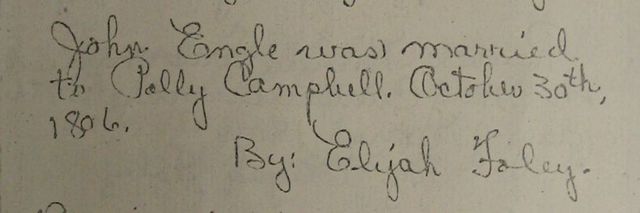 John Engle was married
to Polly Campbell. October 30th,
1806.
By: Elijah Foley.